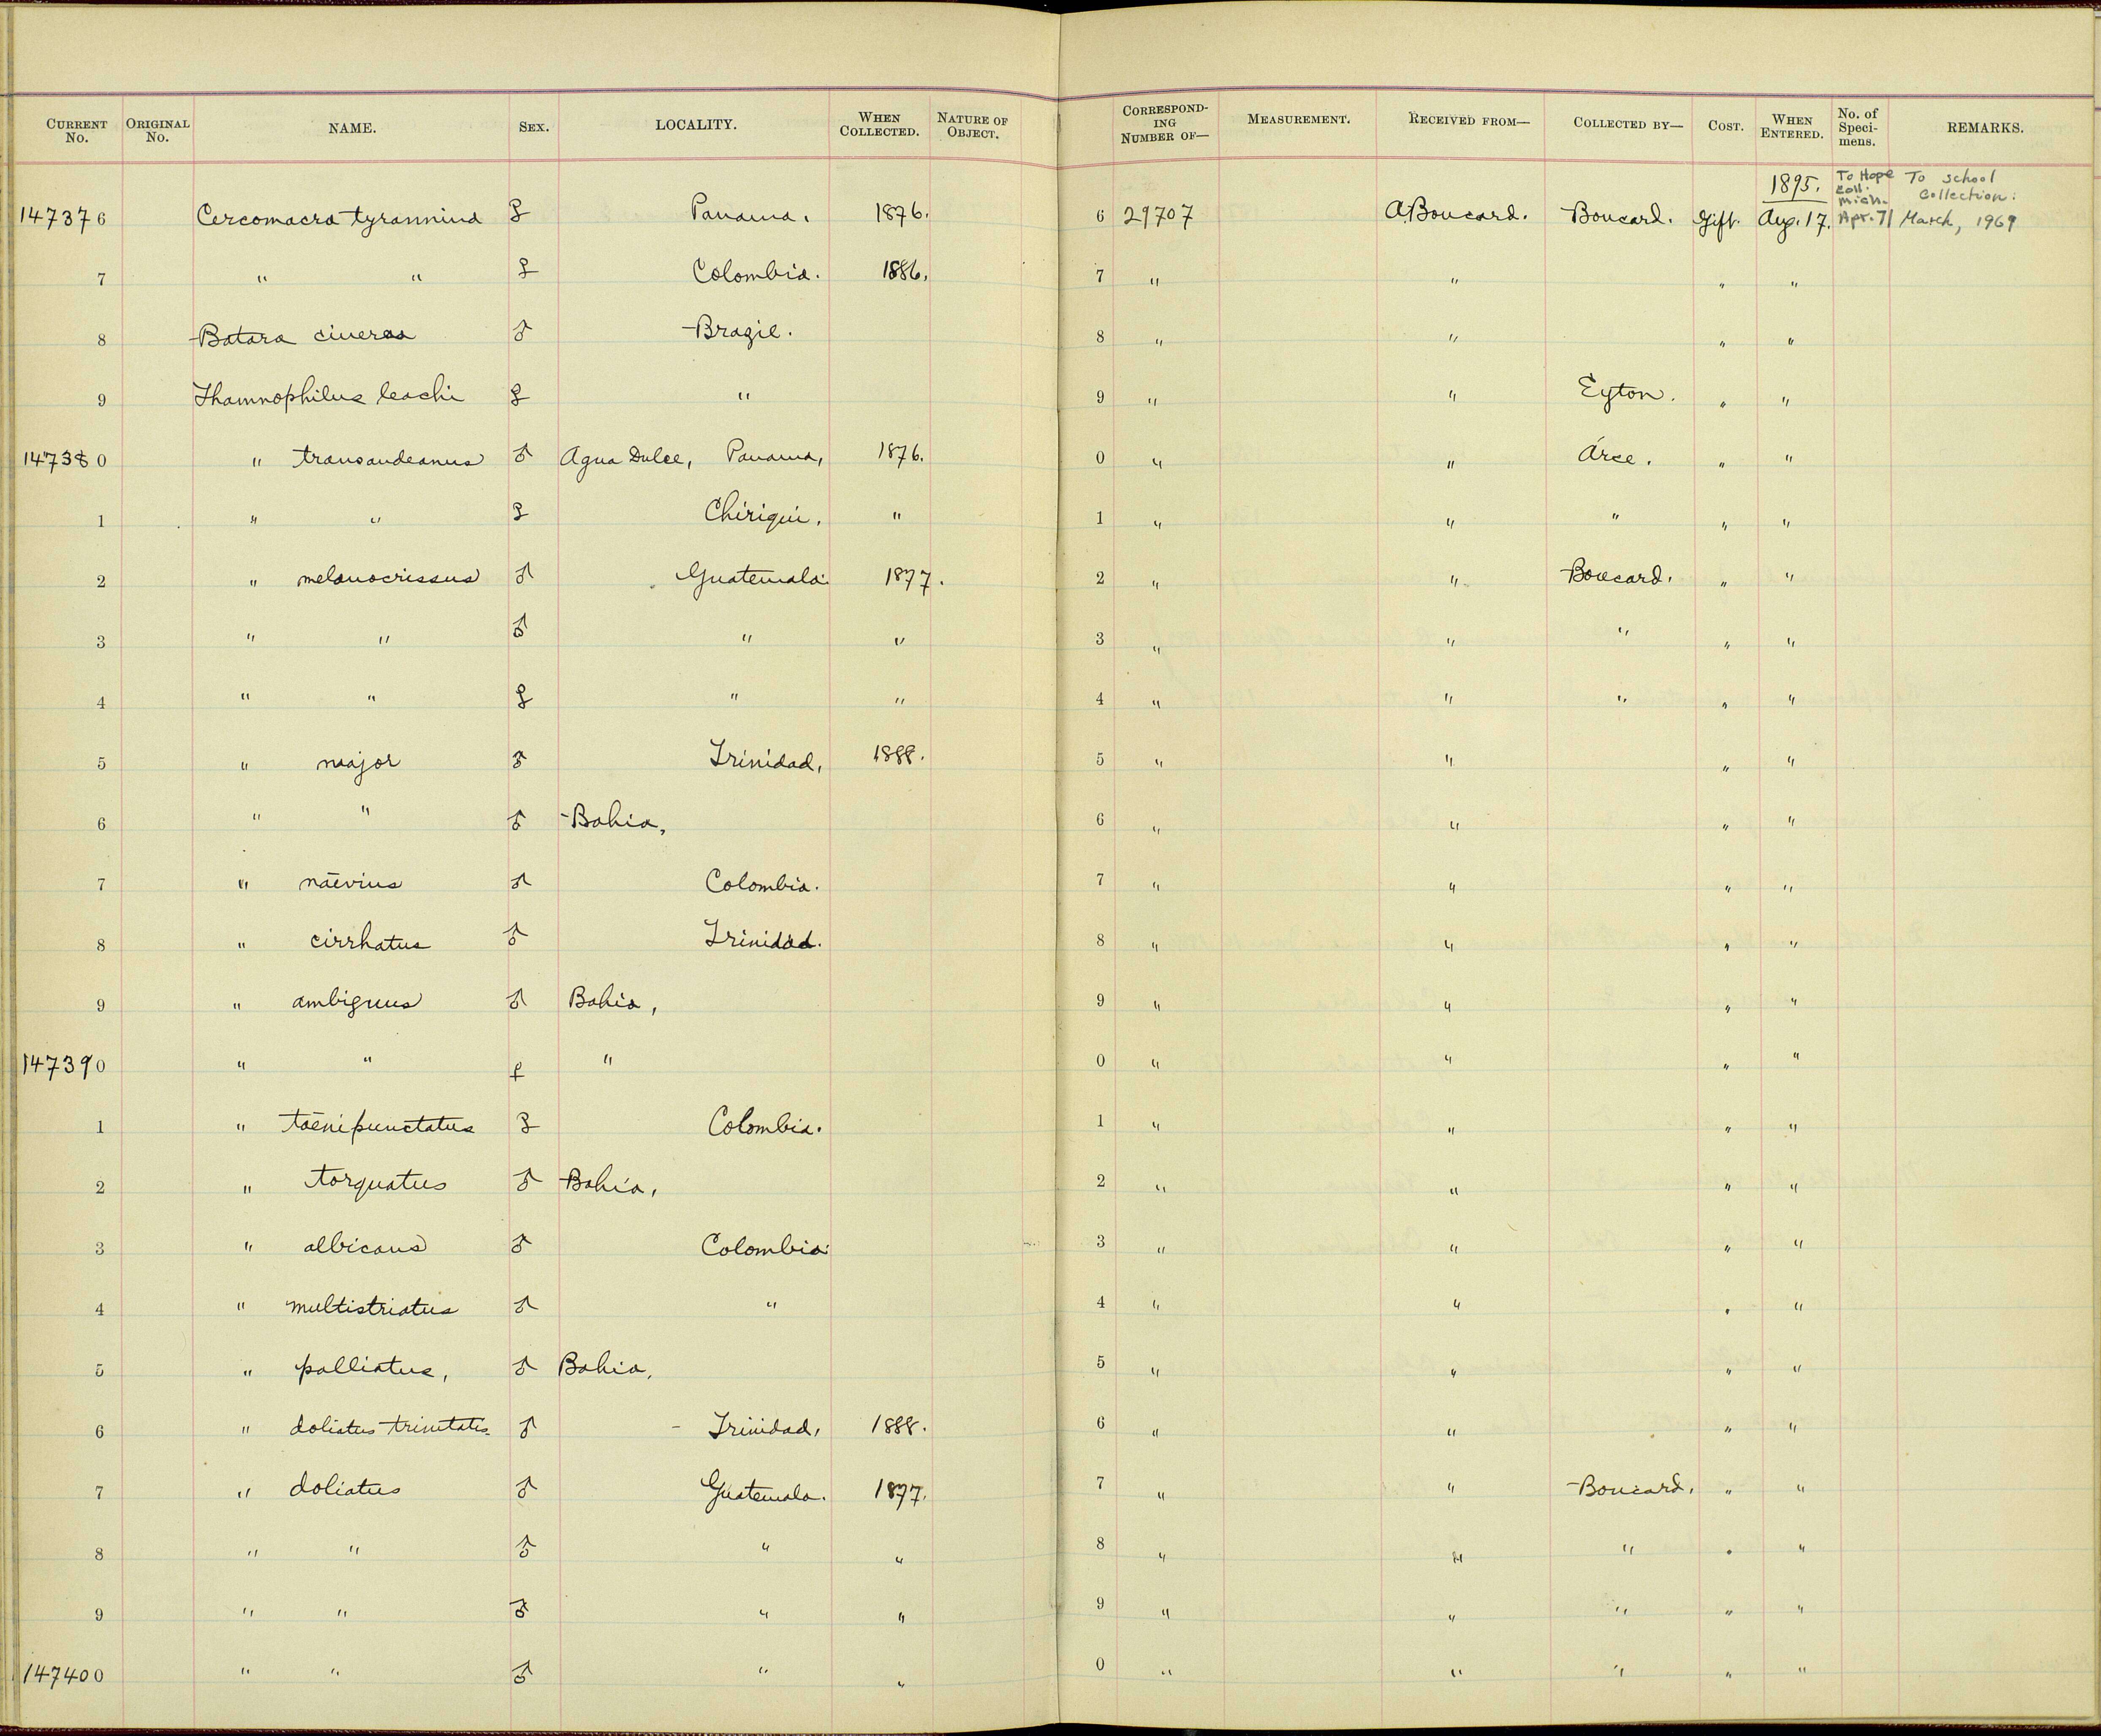 CURRENT No. ORIGINAL No. NAME. SEX. LOCALITY. WHEN COLLECTED. NATURE OF OBJECT. CORRESPONDING NUMBER OF— MEASUREMENT. RECEIVED FROM— COLLECTED BY— COST. WHEN ENTERED. No. of Specimens. REMARKS.
1895. To Hope Coll. Mich. Apr. 71 To school Collection: March, 1969
147376 Cercomacra tyrannina ♀ Panama. 1876. 6 29707 A. Boucard. Boucard. Gift. Aug. 17.
7 " " ♀ Colombia. 1886. 7 " " " "
8 Batara cinerea ♂ Brazil. 8 " " " "
9 Thamnophilus leachi ♀ " 9 " " Eyton. " "
147380 " transandeanus ♂ Agua Dulce, Panama, 1876. 0 " " Arce. " "
1 " " ♀ Chiriqui. " 1 " " " " "
2 " melanocrissus ♂ Guatemala. 1877. 2 " " Boucard. " "
3 " " ♂ " " 3 " " " " "
4 " " ♀ " " 4 " " " " "
5 " major ♂ Trinidad, 1888. 5 " " " "
6 " " ♂ Bahia, 6 " " " "
7 " naevius ♂ Colombia. 7 " " " "
8 " cirrhatus ♂ Trinidad. 8 " " " "
9 " ambiguus ♂ Bahia, 9 " " " "
147390 " " ♀ " 0 " " " "
1 " taenipunctatus ♀ Colombia. 1 " " " "
2 " torquatus ♂ Bahia, 2 " " " "
3 " albicans ♂ Colombia. 3 " " " "
4 " multistriatus ♂ " 4 " " " "
5 " palliatus, ♂ Bahia, 5 " " " "
6 " doliatus trinitatis. ♂ - Trinidad, 1888. 6 " " " "
7 " doliatus ♂ Guatemala. 1877. 7 " " Boucard. " "
8 " " ♂ " " 8 " " " " "
9 " " ♂ " " 9 " " " " "
147400 " " ♂ " " 0 " " " " "